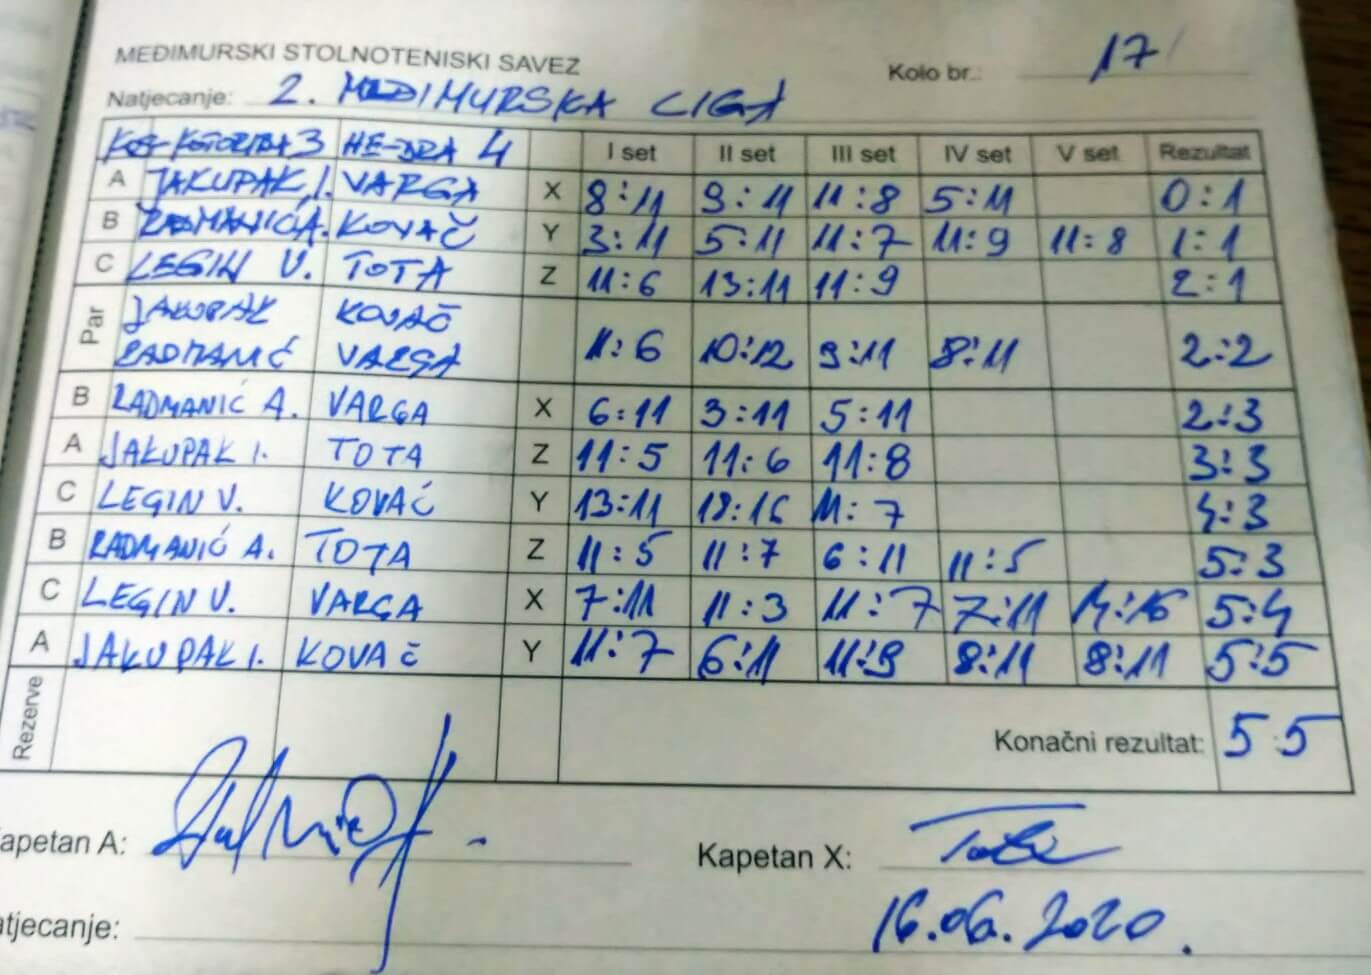 MEĐIMURSKI STOLNOTENISKI SAVEZ
Kolo br.: 17
Natjecanje: 2. MEĐIMURSKA LIGA
KOTORIBA 3 HE-DRA 4 I set II set III set IV set V set Rezultat
A JAKUPAK I. VARGA X 8:11 9:11 11:8 5:11 0:1
B RADMANIĆ A. KOVAČ Y 3:11 5:11 11:7 11:9 11:8 1:1
C LEGIN V. TOTA Z 11:6 13:11 11:9 2:1
Par JAKUPAK KOVAČ
RADMANIĆ VARGA 11:6 10:12 9:11 8:11 2:2
B RADMANIĆ A. VARGA X 6:11 3:11 5:11 2:3
A JAKUPAK I. TOTA Z 11:5 11:6 11:8 3:3
C LEGIN V. KOVAĆ Y 13:11 18:16 11:7 4:3
B RADMANIĆ A. TOTA Z 11:5 11:7 6:11 11:5 5:3
C LEGIN V. VARGA X 7:11 11:3 11:7 7:11 14:16 5:4
A JAKUPAK I. KOVAČ Y 11:7 6:11 11:9 8:11 8:11 5:5
Rezerve
Konačni rezultat: 5:5
apetan A:
Kapetan X:
atjecanje: 16.06.2020.